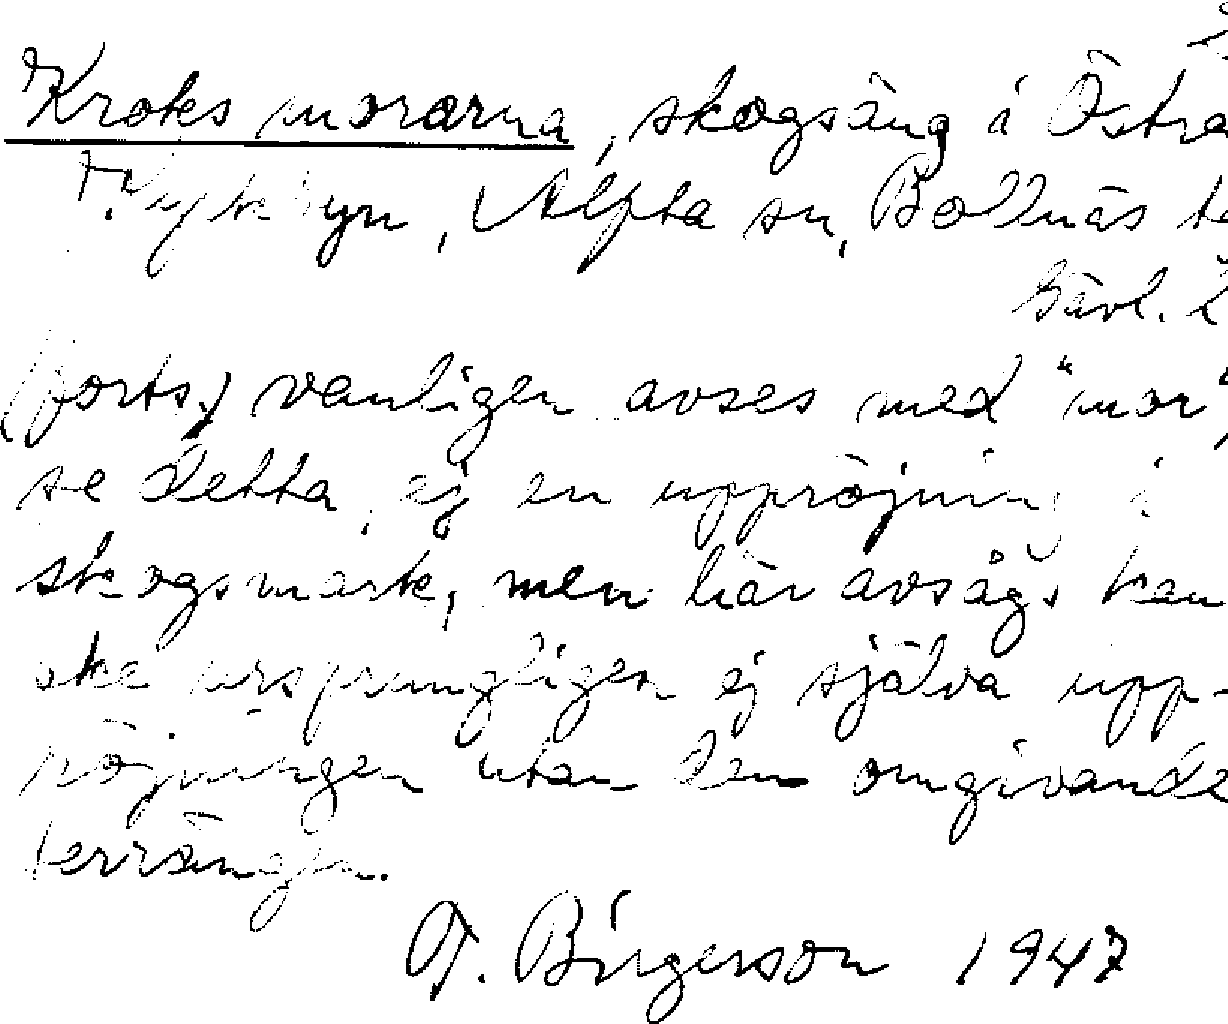 Kroksmorarna, skogsäng i Östra
Alfta sn, Bollnäs
Gävl. l
(forts.) vanligen avses med "mor",
se detta, ej en uppröjning i
skogsmark, men här avsågs kan
ske ursprungligen ej själva upp-
röjningen utan den omgivande
terrängen.
T. Birgerson 1947